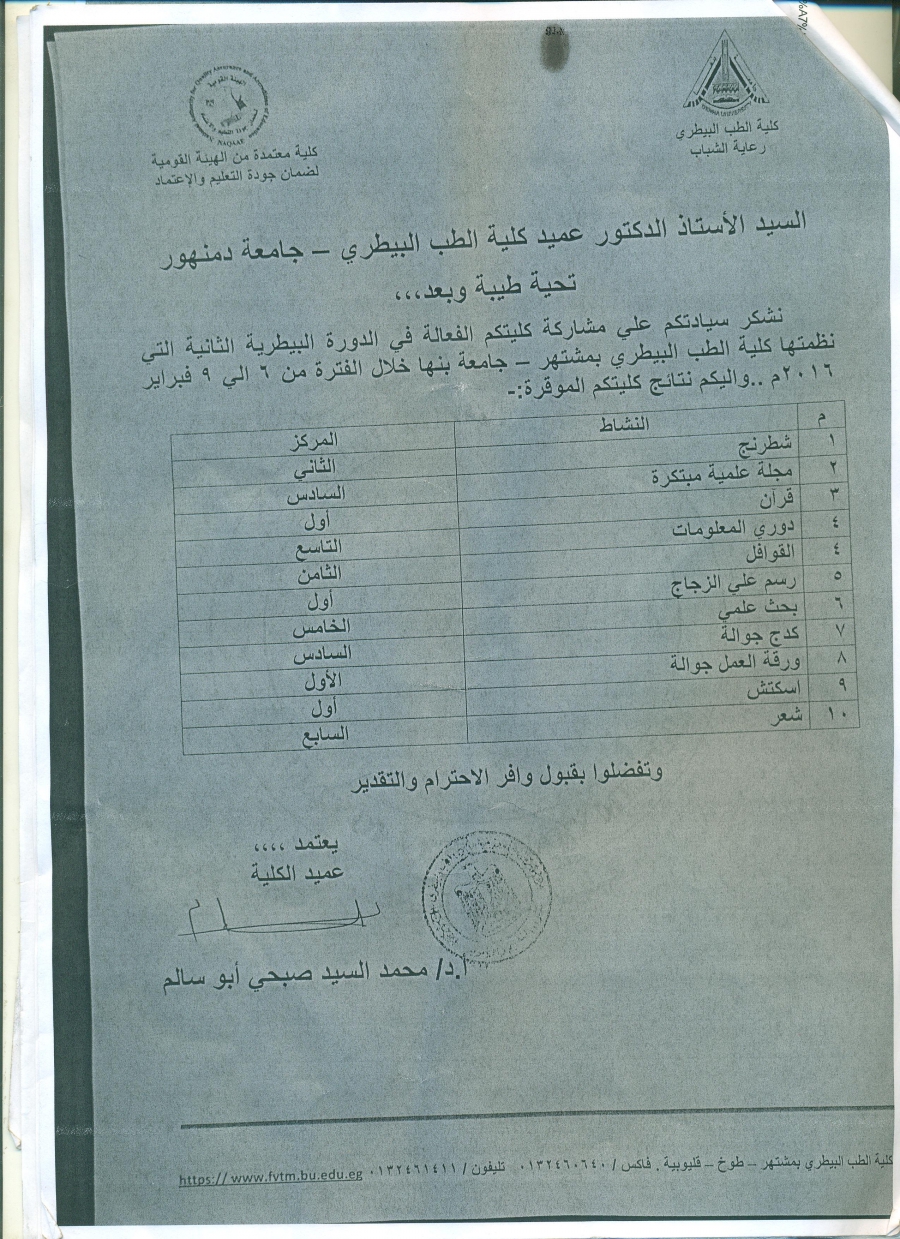 كلية الطب البيطري
رعاية الشباب
كلية معتمدة من الهيئة القومية
لضمان جودة التعليم والإعتماد
السيد الأستاذ الدكتور عميد كلية الطب البيطري – جامعة دمنهور
تحية طيبة وبعد،،،
نشكر سيادتكم علي مشاركة كليتكم الفعالة في الدورة البيطرية الثانية التي
نظمتها كلية الطب البيطري بمشتهر – جامعة بنها خلال الفترة من ٦ الي ٩ فبراير
٢٠١٦م ..واليكم نتائج كليتكم الموقرة:-
م النشاط المركز
١ شطرنج الثاني
٢ مجلة علمية مبتكرة السادس
٣ قرآن أول
٤ دوري المعلومات التاسع
٤ القوافل الثامن
٥ رسم علي الزجاج أول
٦ بحث علمي الخامس
٧ كدج جوالة السادس
٨ ورقة العمل جوالة الأول
٩ اسكتش أول
١٠ شعر السابع
وتفضلوا بقبول وافر الاحترام والتقدير
يعتمد ،،،،
عميد الكلية
أ.د/ محمد السيد صبحي أبو سالم
كلية الطب البيطري بمشتهر – طوخ – قليوبية . فاكس / ٠١٣٢٤٦٠٦٤٠ تليفون / ٠١٣٢٤٦١٤١١ https:// www.fvtm.bu.edu.eg